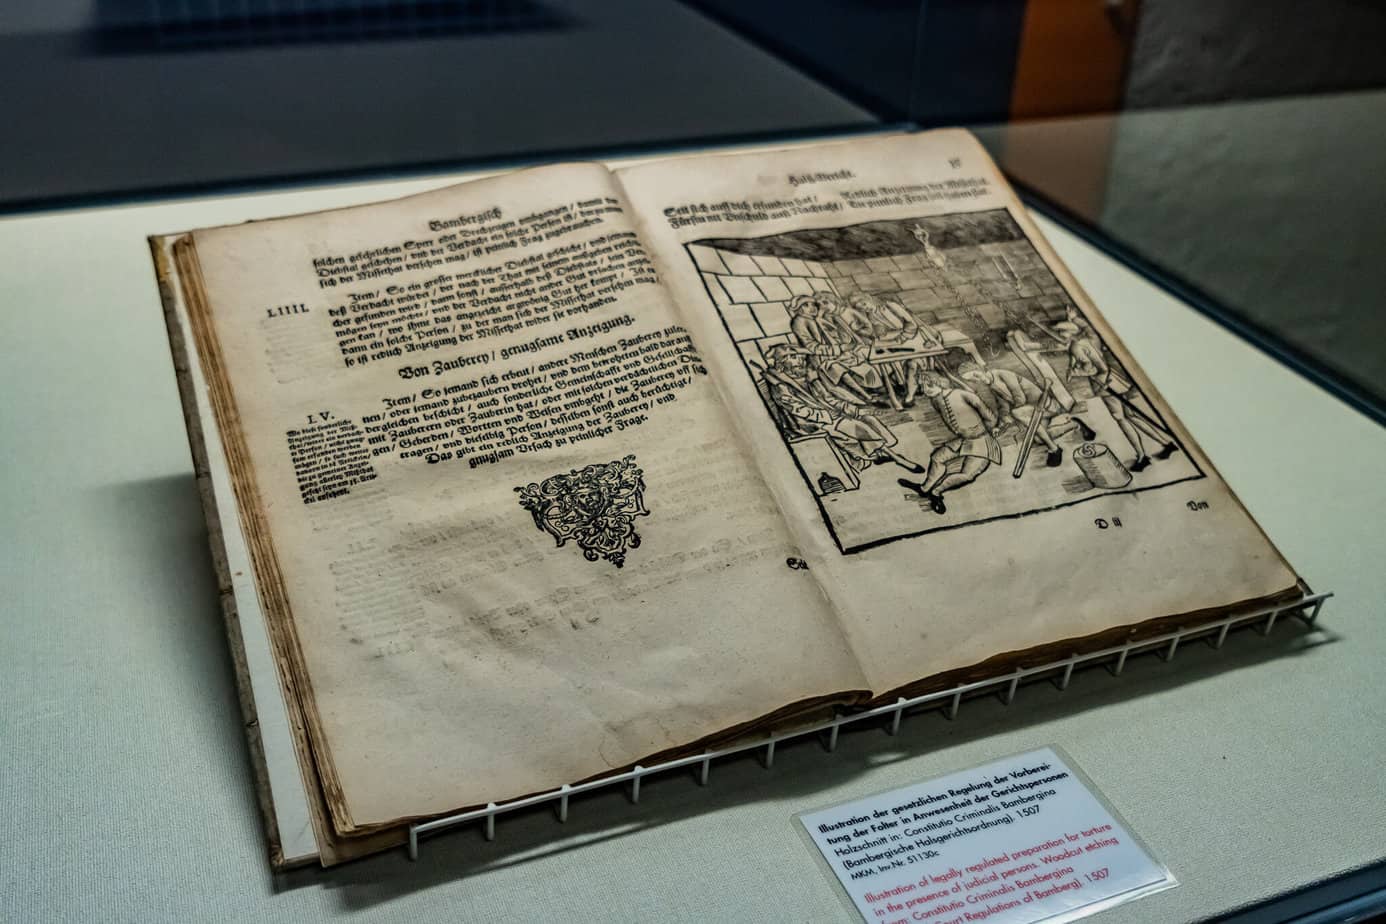 Bambergisch
solchen gefehrlichen Sperr oder Brechzeugen umbgangen / damit der
Diebstal geschehen / und der Verdacht ein solche Person ist / der zu man
sich der Missethat versehen mag / ist peinlich Frag zugebrauchen.
LIIII.
Item / So ein grosser mercklicher Diebstal geschicht / und jemand
deß Verdacht würdet / der nach der That mit seinem außgeben reich
cher gefunden wird / dann sonst / ausserhalb deß Diebstals / sein Ver
mögen seyn möchte / und der Verdacht nicht ander Gut ursachen anzei
gen kan / wo ihme das angezeicht argwönig Gut her kompt / Ist es
dann ein solche Person / zu der man sich der Missethat versehen mag /
so ist redlich Anzeigung der Missethat wider sie vorhanden.
Von Zauberey / genugsame Anzeigung.
LV.
Item / So jemand sich erbeut / andere Menschen Zauberey zuler-
nen / oder jemand zubezaubern drohet / und dem bedrohten bald darauff
dergleichen beschicht / auch sonderliche Gemeinschafft und Gesellschafft
mit Zauberern oder Zauberin hat / oder mit solchen verdächtlichen Din-
gen / Geberden / Worten und Weisen umbgeht / die Zauberey uff sich
tragen / und dieselbig Person / desselben sonst auch berüchtigt /
Das gibt ein redlich Anzeigung der Zauberey / und
gnugsam Ursach zu peinlicher Frage.
Seit
Halßgericht.
Seit sich auff dich erfunden hat / Redlich Anzeigung der Missethat.
Fürsin un Unschuld auß Nachtaht / Die pinlich Frag soll haben stat.
D iij
Von
Illustration der gesetzlichen Regelung der Vorberei-
tung der Folter in Anwesenheit der Gerichtspersonen
Holzschnitt in: Constitutio Criminalis Bambergina
(Bambergische Halsgerichtsordnung), 1507
MKM, Inv.Nr. 51130c
Illustration of legally regulated preparation for torture
in the presence of judicial persons. Woodcut etching
from: Constitutio Criminalis Bambergina
Court Regulations of Bamberg). 1507